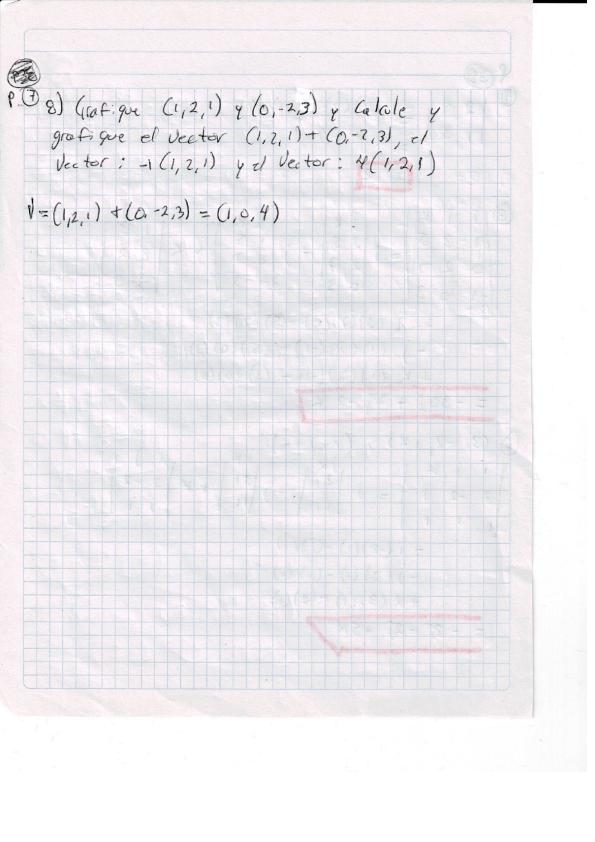 P. 7 8) Grafique (1,2,1) y (0,-2,3) y Calcule y
grafique el vector (1,2,1)+(0,-2,3), el
Vector: -1(1,2,1) y el Vector: 4(1,2,1)
V=(1,2,1)+(0,-2,3)=(1,0,4)